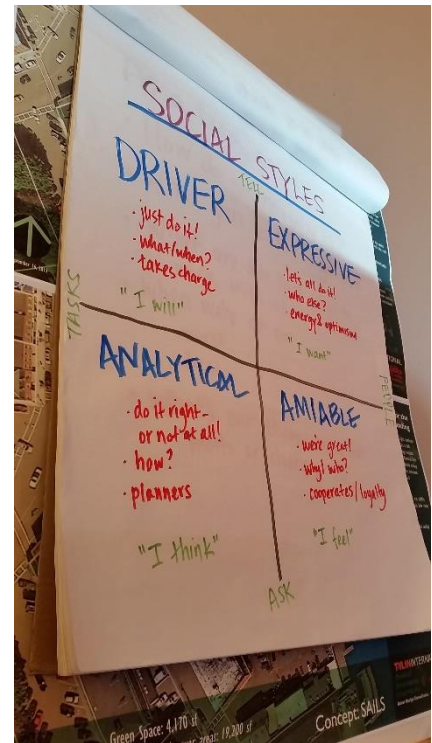 SOCIAL STYLES
TELL
DRIVER
· just do it!
· what/when?
· takes charge
"I will"
EXPRESSIVE
· lets all do it!
· who else?
· energy & optimism
"I want"
TASKS
PEOPLE
ANALYTICAL
· do it right-
or not at all!
· how?
· planners
"I think"
AMIABLE
· we're great!
· why/who?
· cooperates/loyalty
"I feel"
ASK
Green Space: 4,170 sf
area: 19,200 sf
Concept: SAILS